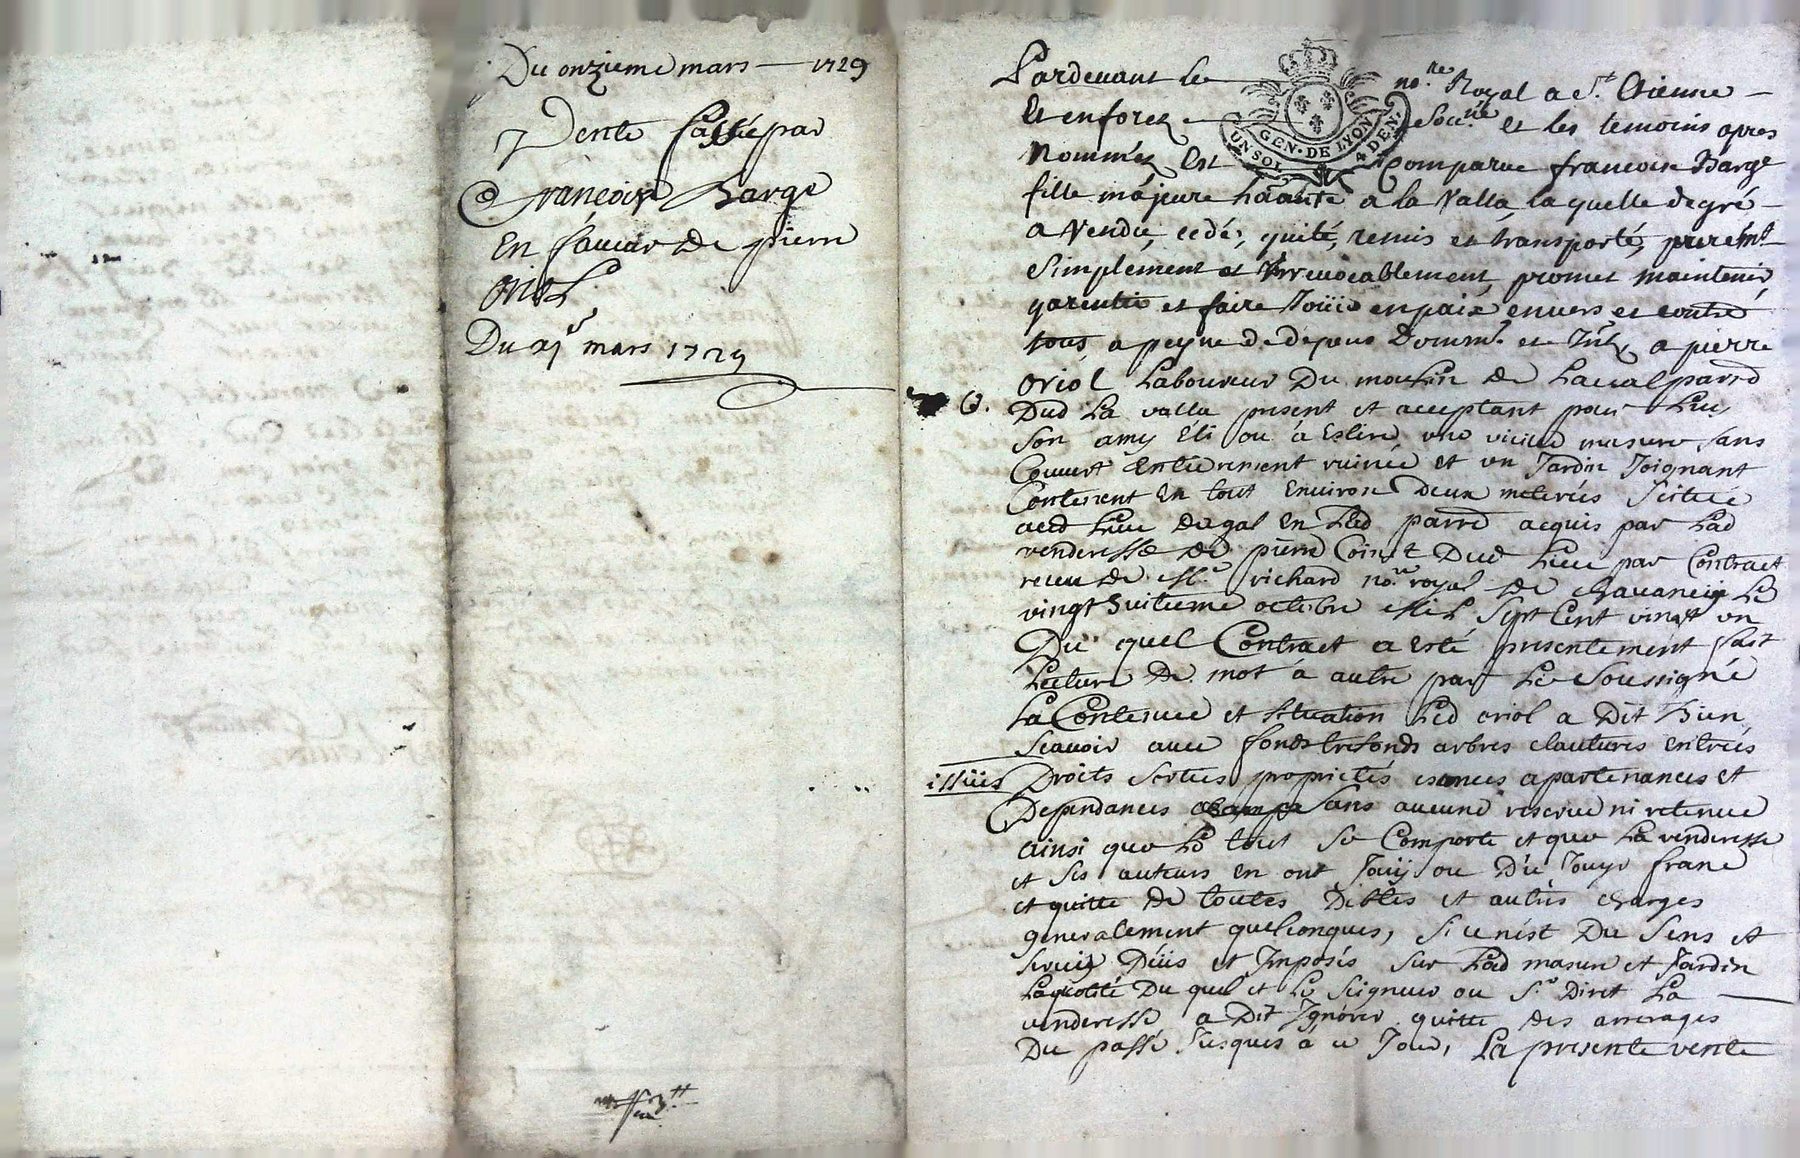 Du onzieme mars — 1729
Vente passée par
francoise Barge
En faveur de pierre
oriol
Du xj.e mars 1729
Pardevant le no.re Royal a S.t Etienne
Et en forez soub.né et les temoins apres
Nommés, Est Comparue francoise Barge
fille majeure h'a'ante a la Valla, laquelle de gré
a Vendu, cedé, quité, remis et transporté, purem.t
Simplement et Irrevocablement, promet maintenir
garentir et faire Joüir en paix envers et contre
tous, a peyne de depens Domm.s et Int.s, a pierre
oriol Laboureur Du moulin de Laval parr.e
Dud La valla present et acceptant pour Luy
son amy Eli ou a Eslire, une vieille masure, sans
Couvert Entierement ruinée et un Jardin Joignant
Contenent en tout Environ Deux meterées Scitué
aud Lieu dugal En Lad parr.e acquis par Lad
venderesse de pierre Coinet Dud Lieu par Contract
receu de M.e richard no.re royal de chavanein Le
vingt huitieme octobre Mil Sept Cent vingt un
Du quel Contract a esté presentement fait
Lecture De mot á autre par Le Soussigné
La Contenue et Situation Led oriol a Dit Bien
Scavoir avec fonds trefonds arbres clautures entrées
issües Droits Sorties proprietés esances apartenances et
Dependances sans aucune reserve ni retenue
ainsi que Le tout se Comporte et que La venderesse
et ses auteurs en ont Jouÿ ou Dû Jouyr franc
et quitte de toutes Debtes et autres charges
generalement quelconques, Si ce n'est Du Sens et
Servis Düs et Imposés Sur Lad masure et Jardin
La quotité Du quel et Le Seigneur ou S.r Diret La
venderesse a Dit Ignorer quitte des arrerages
Du passé Jusques a ce Jour, La presente vente
GEN. DE LYON
UN SOL 4 DEN.